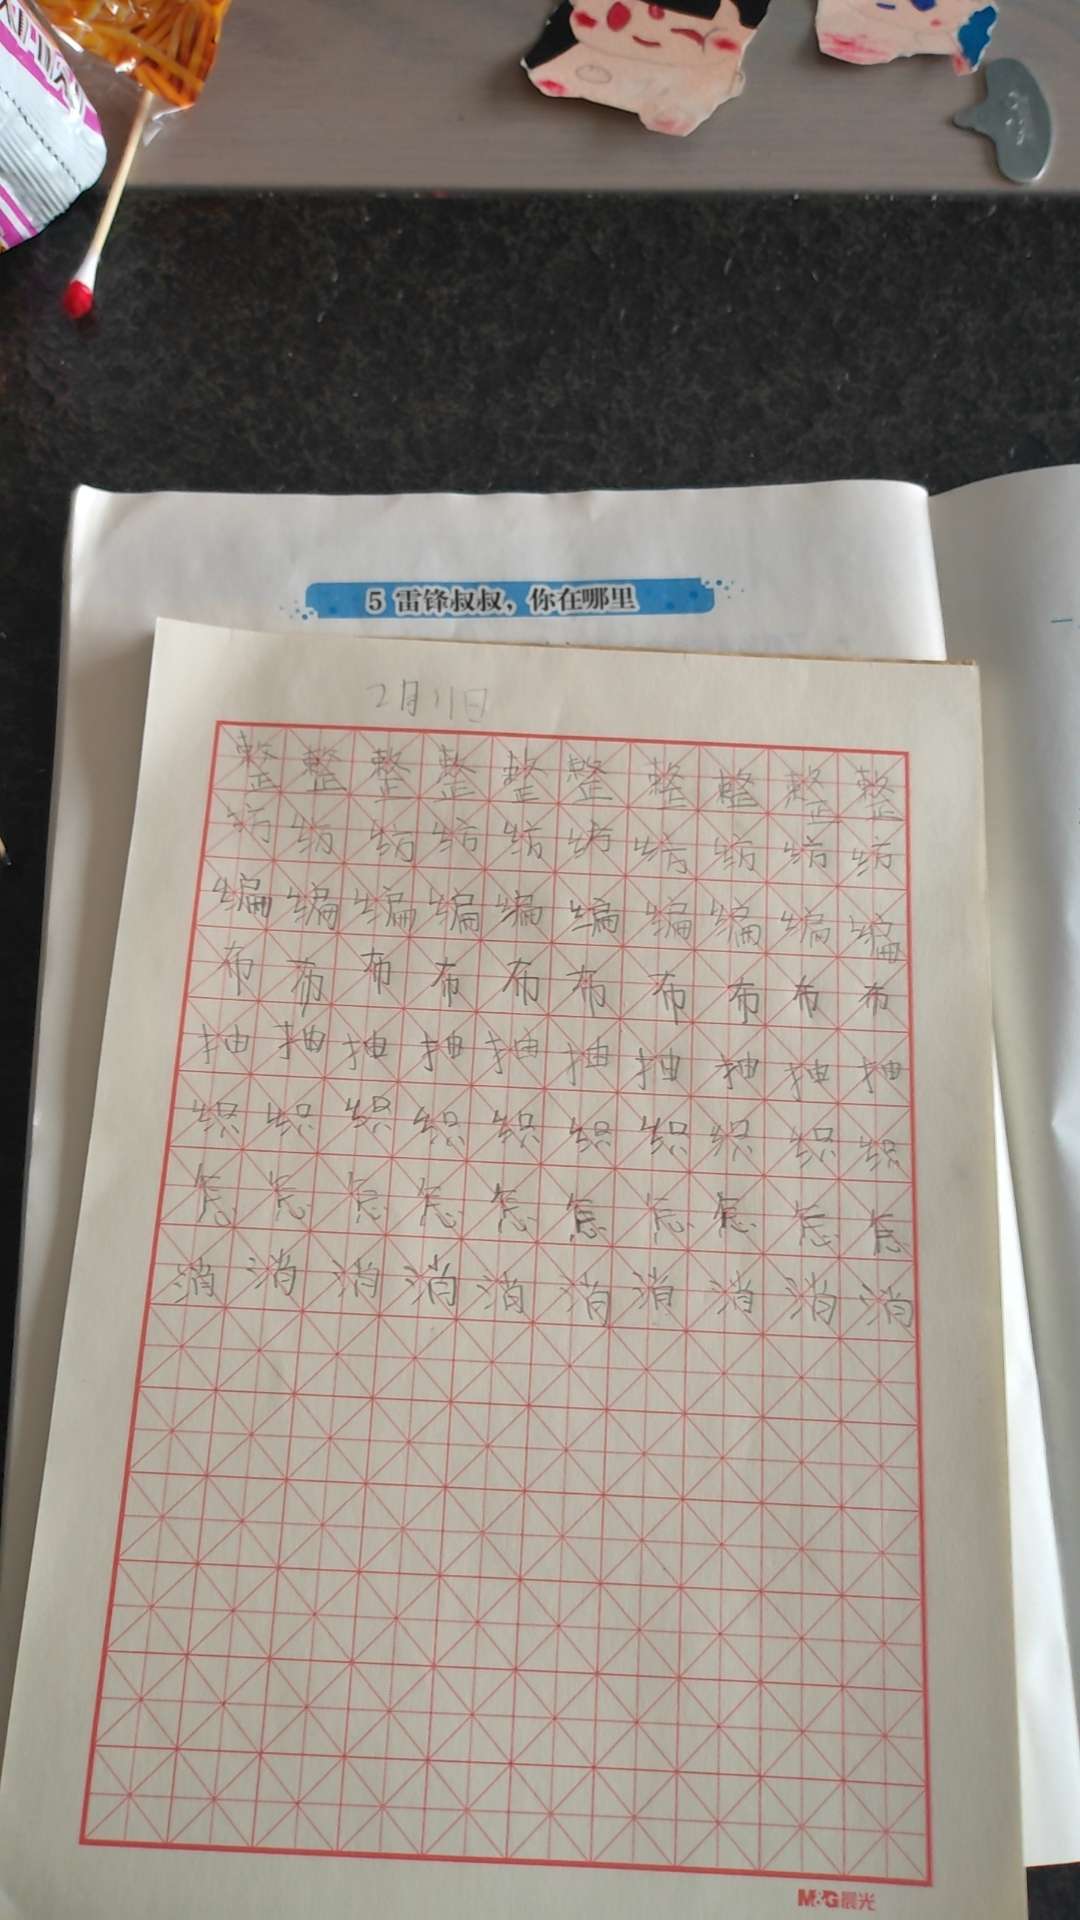 5 雷锋叔叔，你在哪里
2月11日
整整整整整整整整整整
纺纺纺纺纺纺纺纺纺纺
编编编编编编编编编编
布布布布布布布布布布
抽抽抽抽抽抽抽抽抽抽
织织织织织织织织织织
怎怎怎怎怎怎怎怎怎怎
消消消消消消消消消消
M&G晨光